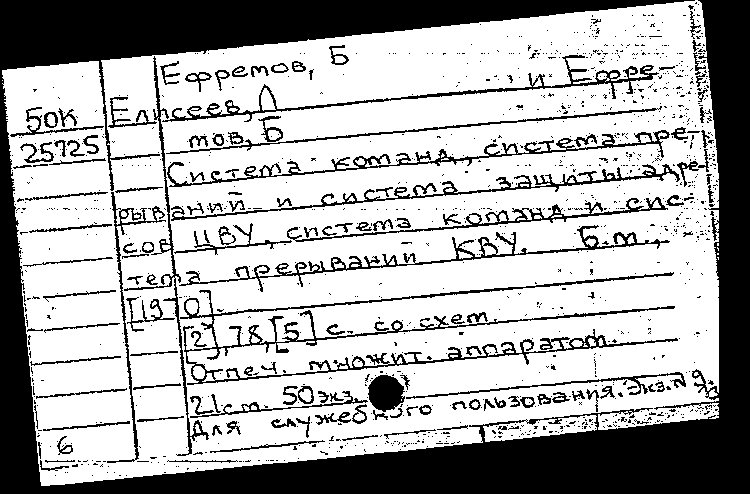 Ефремов, Б
50К Елисеев, Л и Ефре-
25725 мов, Б
Система команд, система пре-
рываний и система защиты адре-
сов ЦВУ, система команд и сис-
тема прерываний КВУ. Б.м.,
[1970].
[2], 78, [5] с. со схем.
Отпеч. множит. аппаратом.
21 см. 50 экз.
Для служебного пользования. Экз. №
6